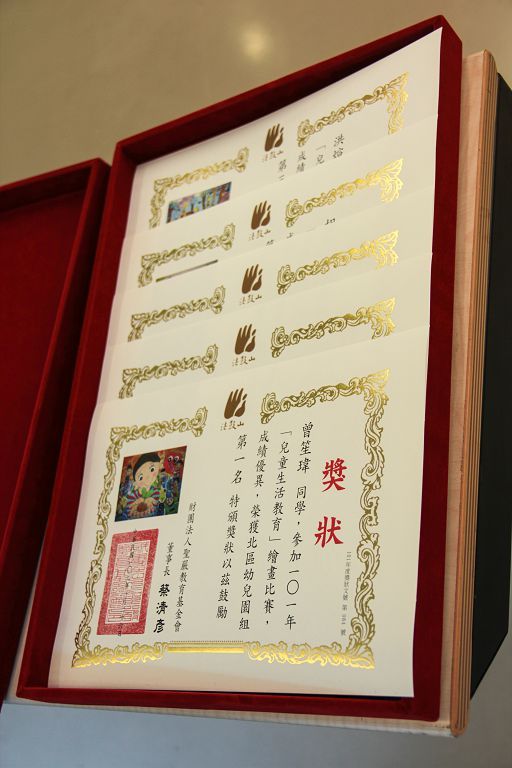 法鼓山
洪
「兒
成績
第
法鼓山
法鼓山
法鼓山
法鼓山
獎狀
101年度獎狀文號 第 384 號
曾笙瑋 同學，參加一〇一年
「兒童生活教育」繪畫比賽，
成績優異，榮獲北區幼兒園組
第一名 特頒獎狀以茲鼓勵
財團法人聖嚴教育基金會
董事長 蔡清彥